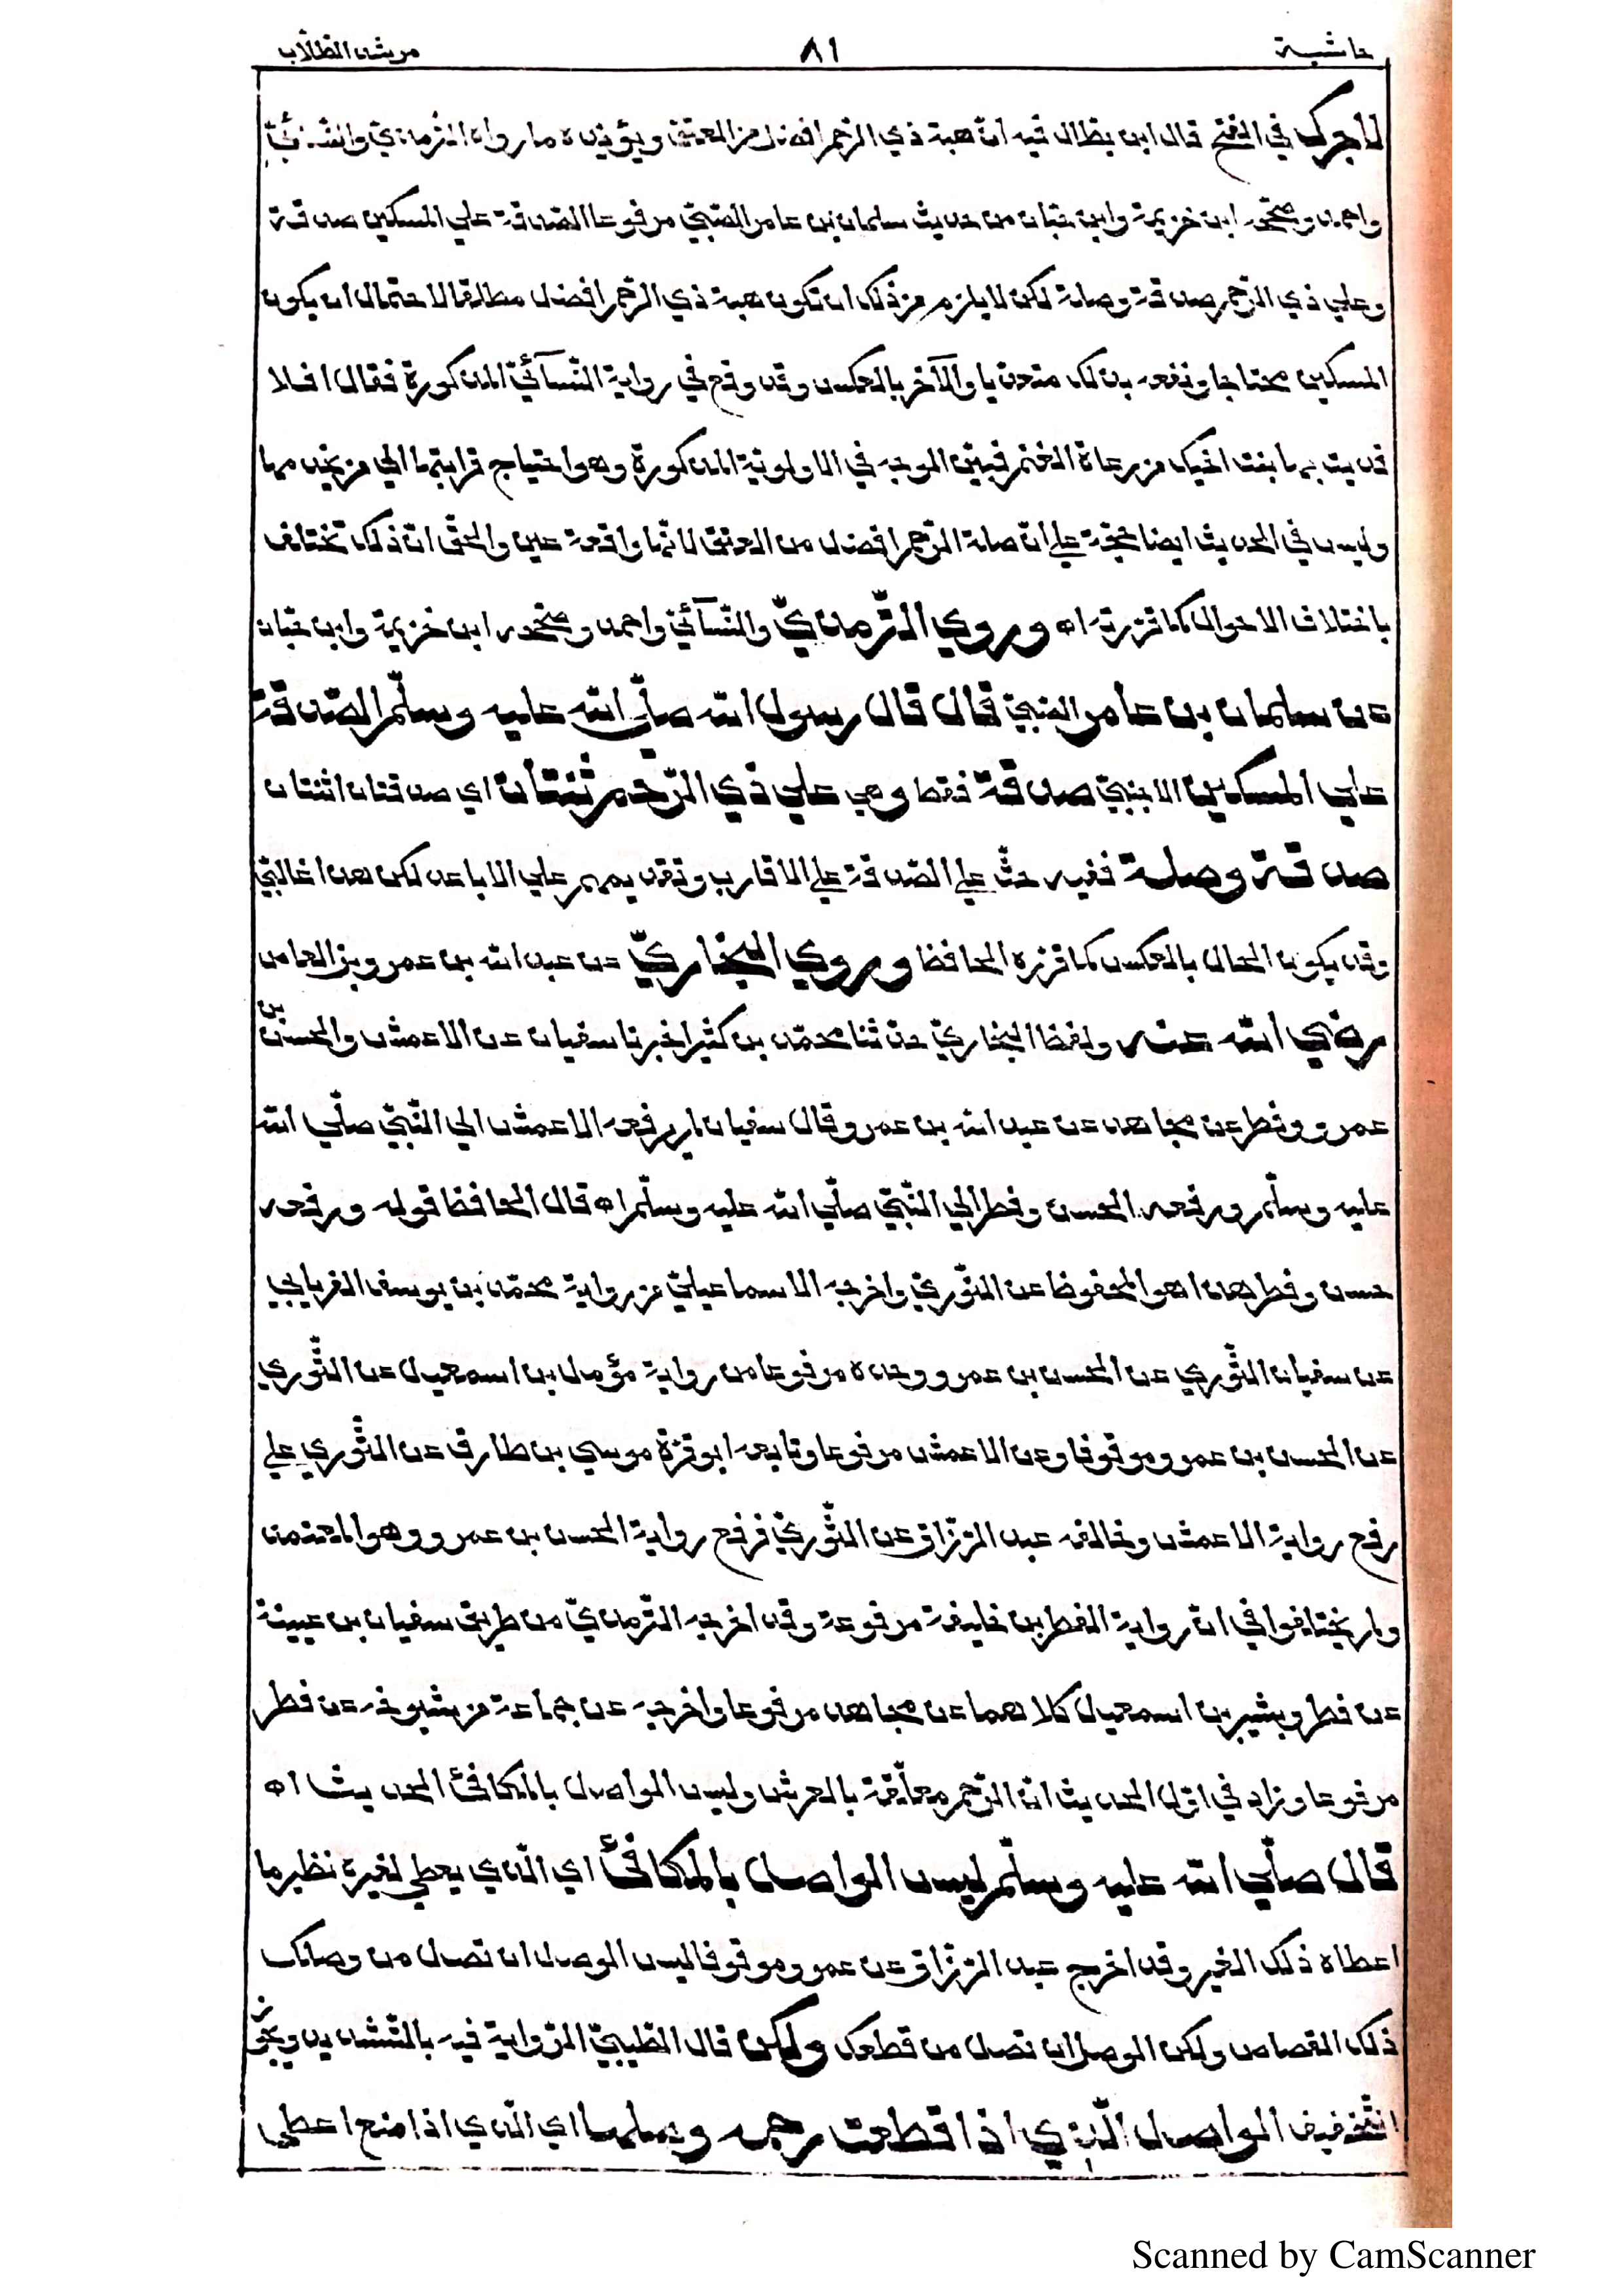 حاشية ٨١ مرشد الطلّاب
لاجرك في الفتح قال ابن بطال فيه انّ هبة ذي الرّحم افضل من العتق ويؤيّده ما رواه الترمذي والنّسآئيّ
واحمد وصحّحه ابن خزيمة وابن حبّان من حديث سلمان بن عامر الضّبّيّ مرفوعا الصّدقة علي المسكين صدقة
وعلي ذي الرّحم صدقة وصلة لكن لا يلزم من ذلك ان تكون هبة ذي الرّحم افضل مطلقا لاحتمال ان يكون
المسكين محتاجا ونفعه بذلك متعدّيا والآخر بالعكس وقد وقع في رواية النّسآئيّ المذكورة فقال افلا
فديت بها بنت اخيك من رعاة الغنم فبيّن الوجه في الاولويّة المذكورة وهو احتياج قرابتها الي من يخدمها
وليس في الحديث ايضا حجّة علي انّ صلة الرّحم افضل من العتق لانّها واقعة عين والحقّ انّ ذلك تختلف
باختلاف الاحوال كما قرّرته اه وروي التّرمذيّ والنّسآئيّ واحمد وصحّحه ابن خزيمة وابن حبّان
عن سلمان بن عامر الضّبّيّ قال قال رسول الله صلّي الله عليه وسلّم الصّدقة
علي المسكين الاجنبيّ صدقة فقط وهي علي ذي الرّحم ثنتان اي صدقتان اثنتان
صدقة وصلة ففيه حثّ علي الصّدقة علي الاقارب وتقديمهم علي الاباعد لكن هذا غالبيّ
وقد يكون الحال بالعكس كما قرّره الحافظ وروي البخاريّ عن عبد الله بن عمرو بن العاص
رضي الله عنه ولفظ البخاريّ حدّثنا محمّد بن كثير اخبرنا سفيان عن الاعمش والحسن بن
عمرو وفطر عن مجاهد عن عبد الله بن عمرو وقال سفيان لم يرفعه الاعمش الي النّبيّ صلّي الله
عليه وسلّم ورفعه الحسن وفطر الي النّبيّ صلّي الله عليه وسلّم اه قال الحافظ قوله ورفعه
حسن وفطر هذا هو المحفوظ عن الثّوريّ واخرجه الاسماعيليّ من رواية محمّد بن يوسف الفريابي
عن سفيان الثّوري عن الحسن بن عمرو وحده مرفوعا من رواية مؤمل بن اسمعيل عن الثّوري
عن الحسن بن عمرو موقوفا وعن الاعمش مرفوعا وتابعه ابو قرّة موسي بن طارق عن الثّوري علي
رفع رواية الاعمش وخالفه عبد الرّزّاق عن الثّوريّ فرفع رواية الحسن بن عمرو وهو المعتمد
ولم يختلفوا في انّ رواية الفطر بن خليفة مرفوعة وقد اخرجه التّرمذيّ من طريق سفيان بن عيينة
عن فطر وبشير بن اسمعيل كلاهما عن مجاهد مرفوعا واخرجه عن جماعة من شيوخه عن فطر
مرفوعا وزاد في اوّل الحديث انّ الرّحم معلّقة بالعرش وليس الواصل بالمكافئ الحديث اه
قال صلّي الله عليه وسلّم ليس الواصل بالمكافئ اي الّذي يعطي لغيره نظير ما
اعطاه ذلك الغير وقد اخرج عبد الرّزّاق عن عمر وموقوفا ليس الوصل ان تصل من وصلك
ذلك القصاص ولكن الوصل ان تصل من قطعك ولكن قال الطّيبيّ الرّواية فيه بالتّشديد ويجوز
التّخفيف الواصل الّذي اذا قطعت رحمه وصلها اي الّذي اذا منع اعطي
Scanned by CamScanner